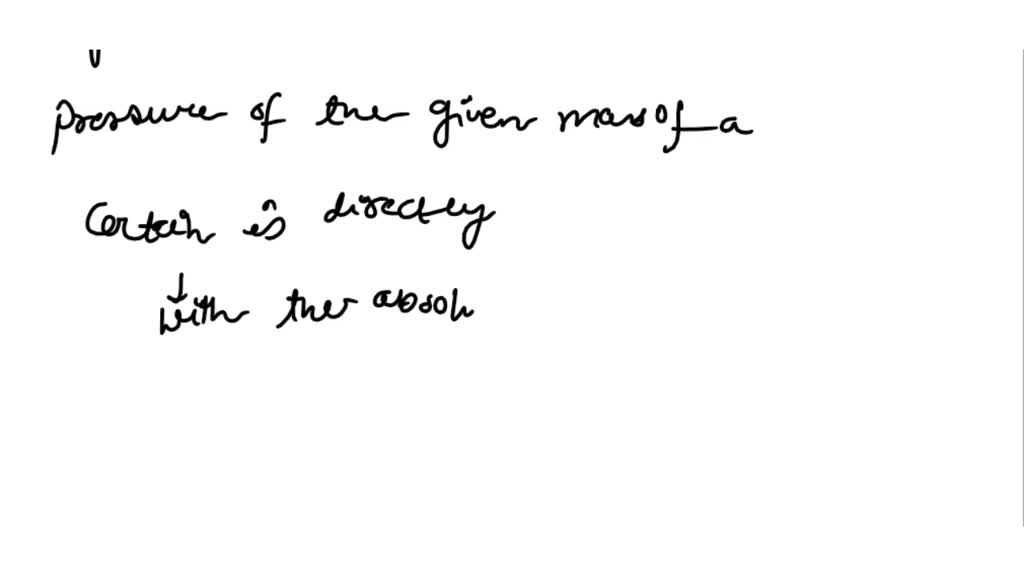 pressure of the given mass of a
Certain is directly
with the absol